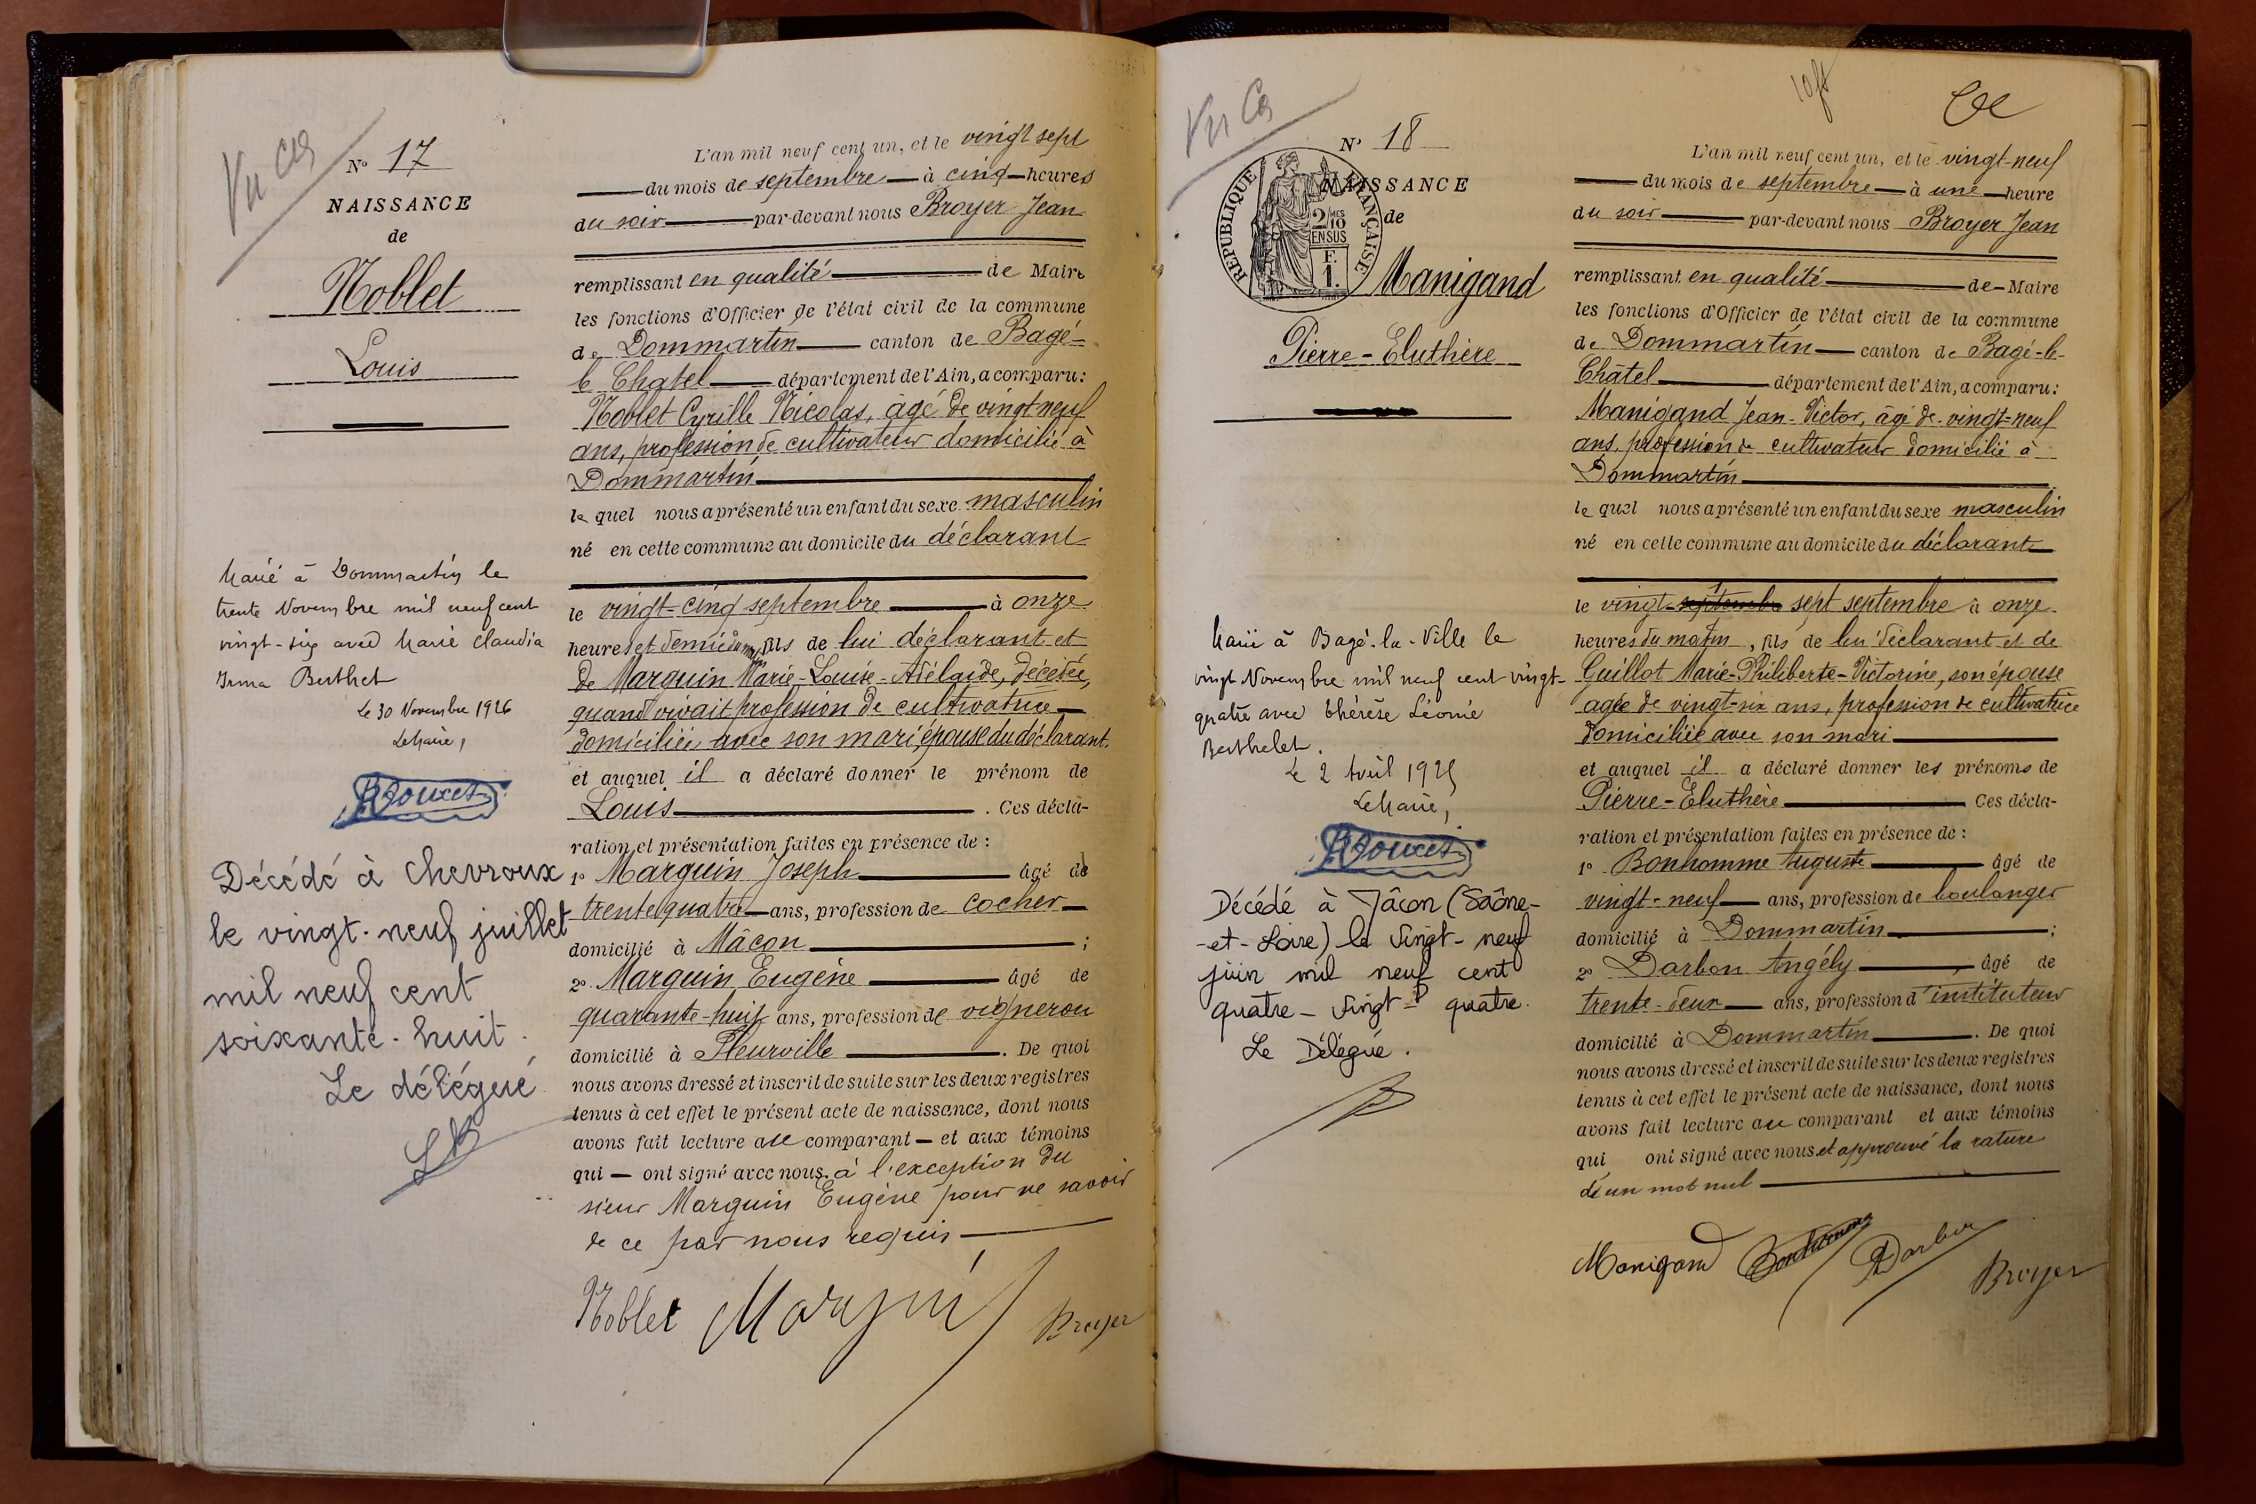 Vu
N° 17
NAISSANCE
de
Noblet
Louis
Marié à Dommartin le
trente Novembre mil neuf cent
vingt-six avec Marie Claudia
Irma Berthet
Le 30 Novembre 1926
Le Maire,
Décédé à Chevroux
le vingt-neuf juillet
mil neuf cent
soixante-huit.
Le délégué
L'an mil neuf cent un, et le vingt sept
du mois de septembre à cinq heures
du soir par-devant nous Broyer Jean
remplissant en qualité de Maire
les fonctions d'Officier de l'état civil de la commune
de Dommartin canton de Bagé-
le Chatel département de l'Ain, a comparu:
Noblet Cyrille Nicolas, âgé de vingt neuf
ans, profession de cultivateur domicilié à
Dommartin
le quel nous a présenté un enfant du sexe masculin
né en cette commune au domicile du déclarant
le vingt-cinq septembre à onze
heures et demie du fils de lui déclarant et
de Marguin Marie-Louise-Adélaïde, décédée,
quand vivait profession de cultivatrice
domiciliée avec son mari, épouse du déclarant.
et auquel il a déclaré donner le prénom de
Louis . Ces décla-
ration et présentation faites en présence de :
1° Marguin Joseph âgé de
trente quatre ans, profession de cocher
domicilié à Mâcon ;
2° Marguin Eugène âgé de
quarante-huit ans, profession de vigneron
domicilié à Fleurville . De quoi
nous avons dressé et inscrit de suite sur les deux registres
tenus à cet effet le présent acte de naissance, dont nous
avons fait lecture au comparant et aux témoins
qui ont signé avec nous à l'exception du
sieur Marguin Eugène pour ne savoir
de ce par nous requis
Noblet Marguin Broyer
Vu
N° 18
RÉPUBLIQUE FRANÇAISE
2/10 EN SUS
F. 1.
NAISSANCE
de
Manigand
Pierre-Eluthère
Marié à Bagé-la-Ville le
vingt Novembre mil neuf cent vingt-
quatre avec Thérèse Léonie
Berthelet.
Le 2 Avril 1925
Le Maire,
Décédé à Mâcon (Saône-
-et-Loire) le vingt-neuf
juin mil neuf cent
quatre-vingt-quatre.
Le Délégué.
L'an mil neuf cent un, et le vingt-neuf
du mois de septembre à une heure
du soir par-devant nous Broyer Jean
remplissant en qualité de Maire
les fonctions d'Officier de l'état civil de la commune
de Dommartin canton de Bagé-le-
Châtel département de l'Ain, a comparu:
Manigand Jean-Victor, âgé de vingt-neuf
ans, profession de cultivateur domicilié à
Dommartin
le quel nous a présenté un enfant du sexe masculin
né en cette commune au domicile du déclarant
le vingt-septembre sept septembre à onze
heures du matin, fils de lui déclarant et de
Guillot Marie-Philiberte-Victorine, son épouse
agée de vingt-six ans, profession de cultivatrice
domiciliée avec son mari
et auquel il a déclaré donner les prénoms de
Pierre-Eluthère Ces décla-
ration et présentation faites en présence de :
1° Bonhomme Auguste âgé de
vingt-neuf ans, profession de boulanger
domicilié à Dommartin ;
2° Darbon Angély âgé de
trente-deux ans, profession d'instituteur
domicilié à Dommartin . De quoi
nous avons dressé et inscrit de suite sur les deux registres
tenus à cet effet le présent acte de naissance, dont nous
avons fait lecture au comparant et aux témoins
qui ont signé avec nous et approuvé la rature
d'un mot nul
Manigand Bonhomme Darbon Broyer